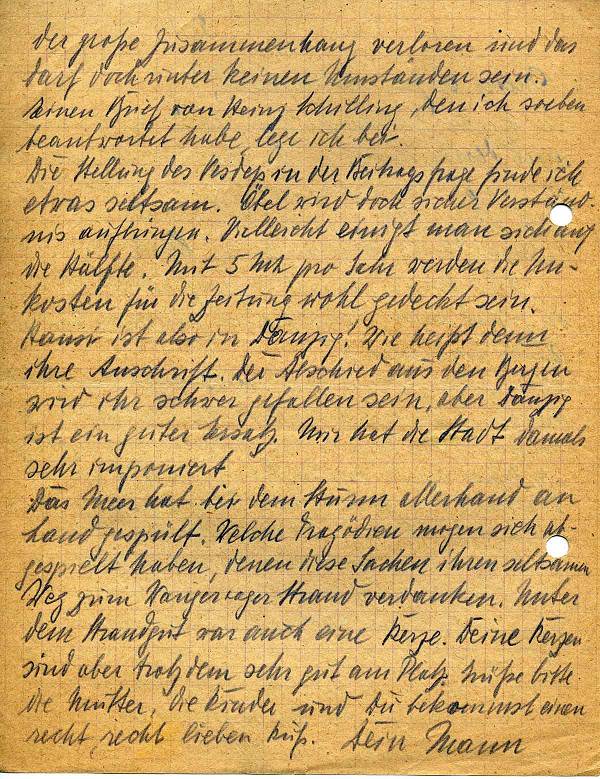 der große Zusammenhang verloren und das
darf doch unter keinen Umständen sein.
Einen Brief von Heinz Schilling, den ich soeben
beantwortet habe, lege ich bei.
Die Stellung des in der Beitragsfrage finde ich
etwas seltsam. wird doch sicher Verständ-
nis aufbringen. Vielleicht einigt man sich auf
die Hälfte. Mit 5 Mk pro Jahr werden die Un-
kosten für die Zeitung wohl gedeckt sein.
Hansi ist also in Danzig! Wie heißt denn
ihre Anschrift. Der Abschied aus den Bergen
wird ihr schwer gefallen sein, aber Danzig
ist ein guter Ersatz. Mir hat die Stadt damals
sehr imponiert
Das Meer hat bei dem Sturm allerhand an
Land gespült. Welche Tragödien mögen sich ab-
gespielt haben, denen diese Sachen ihren seltsamen
Weg zum Wangerooger Strand verdanken. Unter
dem Strandgut war auch eine Kerze. Deine Kerzen
sind aber trotzdem sehr gut am Platz. Grüße bitte
die Mutter, die Kinder und Du bekommst einen
recht, recht lieben Kuß. Dein Mann